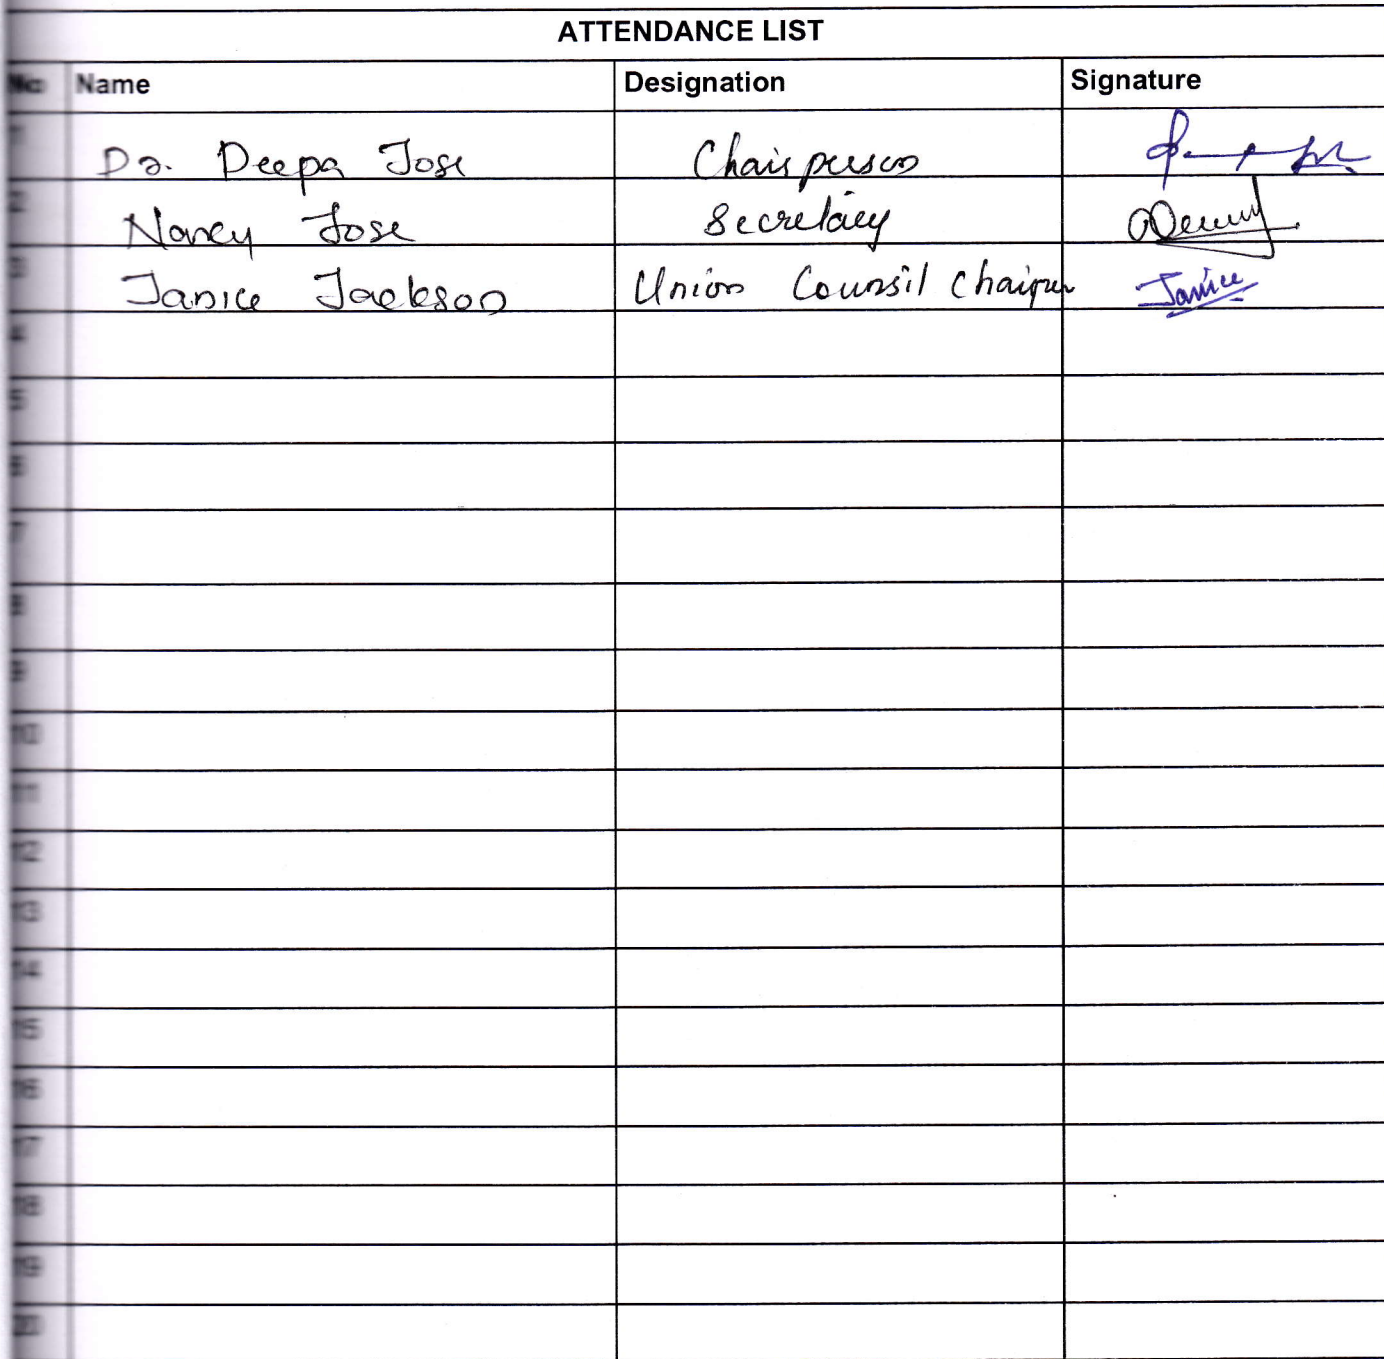 ATTENDANCE LIST
No Name Designation Signature
1 Dr. Deepa Jose Chairperson
2 Nancy Jose Secretary
3 Janice Jackson Union Counsil Chairper Janice
4
5
6
7
8
9
10
11
12
13
14
15
16
17
18
19
20